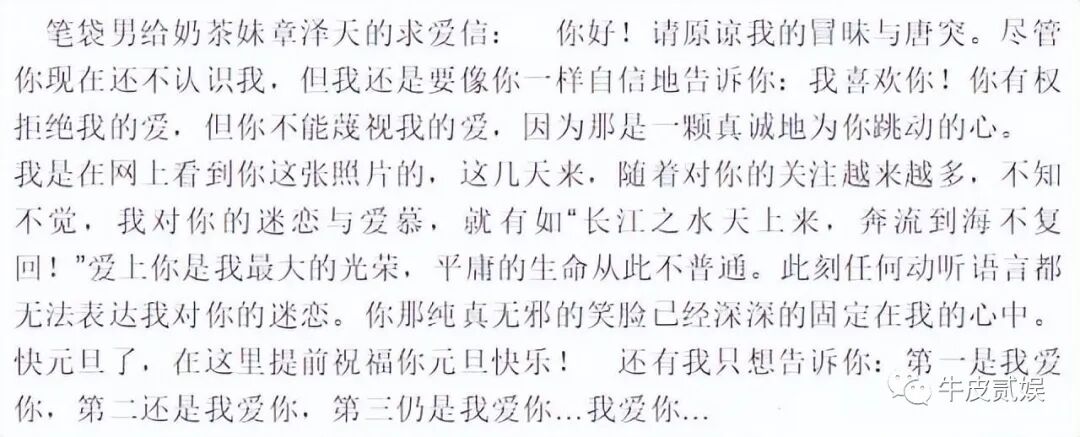 笔袋男给奶茶妹章泽天的求爱信： 你好！请原谅我的冒昧与唐突。尽管
你现在还不认识我，但我还是要像你一样自信地告诉你：我喜欢你！你有权
拒绝我的爱，但你不能蔑视我的爱，因为那是一颗真诚地为你跳动的心。
我是在网上看到你这张照片的，这几天来，随着对你的关注越来越多，不知
不觉，我对你的迷恋与爱慕，就有如“长江之水天上来，奔流到海不复
回！”爱上你是我最大的光荣，平庸的生命从此不普通。此刻任何动听语言都
无法表达我对你的迷恋。你那纯真无邪的笑脸已经深深的固定在我的心中。
快元旦了，在这里提前祝福你元旦快乐！ 还有我只想告诉你：第一是我爱
你，第二还是我爱你，第三仍是我爱你…我爱你…
牛皮贰娱